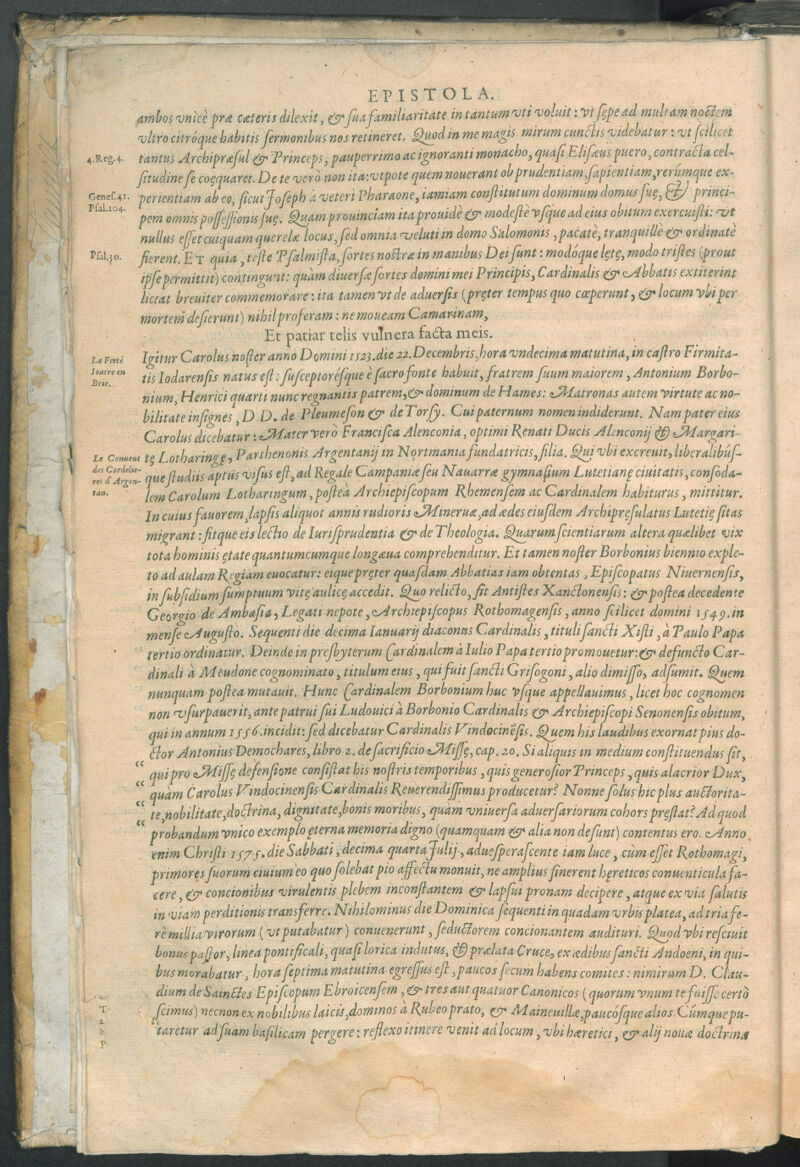 EPISTOLA.
ambos vnicè præ cæteris dilexit, & sua familiaritate in tantum vti voluit: vt sępe ad multam noctem
vltro citróque habitis sermonibus nos retineret. Quod in me magis mirum cunctis videbatur: vt scilicet
4.Reg.4.
tantus Archipræsul & Princeps, pauperrimo ac ignoranti monacho, quasi Elisæus puero, contracta cel-
situdine se coęquaret. De te verò non ita: vtpote quem nouerant ob prudentiam, sapientiam, rerúmque ex-
Genes.41.
perientiam ab eo, sicut Joseph à veteri Pharaone, iamiam constitutum dominum domus suę, & princi-
Psal.104.
pem omnis possessionis suę. Quam prouinciam ita prouidè & modestè vsque ad eius obitum exercuisti: vt
nullus esset cuiquam querelæ locus, sed omnia veluti in domo Salomonis, pacatè, tranquillè & ordinatè
Psal.30.
fierent. ET quia, teste Psalmista, sortes nostræ in manibus Dei sunt: modóque lętę, modo tristes (prout
ipse permittit) contingunt: quàm diuersæ sortes domini mei Principis, Cardinalis & Abbatis extiterint
liceat breuiter commemorare: ita tamen vt de aduersis (pręter tempus quo cœperunt, & locum vbi per
mortem desierunt) nihil proferam: ne moueam Camarinam,
Et patiar telis vulnera facta meis.
La Ferté
Ioarre en
Brie.
Igitur Carolus noster anno Domini 1523. die 22. Decembris, hora vndecima matutina, in castro Firmita-
tis Iodarensis natus est: susceptorésque è sacro fonte habuit, fratrem suum maiorem, Antonium Borbo-
nium, Henrici quarti nunc regnantis patrem, & dominum de Hames: Matronas autem virtute ac no-
bilitate insignes, D D. de Pleumeson & de Torsy. Cui paternum nomen indiderunt. Nam pater eius
Carolus dicebatur: Mater verò Francisca Alenconia, optimi Renati Ducis Alenconij & Margari-
Le Conuent
des Cordelie-
res d'Argen-
tan.
tę Lotharingę, Parthenonis Argentanij in Normania fundatricis, filia. Qui vbi excreuit, liberalibúsq.
que studiis aptus visus est, ad Regale Campaniæ seu Nauarræ gymnasium Lutetianę ciuitatis, consoda-
lem Carolum Lotharingum, posteà Archiepiscopum Rhemensem ac Cardinalem habiturus, mittitur.
In cuius fauorem, lapsis aliquot annis rudioris Mineruæ, ad ædes eiusdem Archipręsulatus Lutetię sitas
migrant: fitque eis lectio de Iurisprudentia & de Theologia. Quarum scientiarum altera quælibet vix
tota hominis ętate quantumcumque longæua comprehenditur. Et tamen noster Borbonius biennio exple-
to ad aulam Regiam euocatur: eique pręter quasdam Abbatias iam obtentas, Episcopatus Niuernensis,
in subsidium sumptuum vitę aulicę accedit. Quo relicto, fit Antistes Xanctonensis: & postea decedente
Georgio de Ambasia, Legati nepote, Archiepiscopus Rothomagensis, anno scilicet domini 1549. in
mense Augusto. Sequenti die decima Ianuarij diaconus Cardinalis, tituli sancti Xisti, à Paulo Papa
tertio ordinatur. Deinde in presbyterum Cardinalem à Iulio Papa tertio promouetur: & defuncto Car-
dinali à Meudone cognominato, titulum eius, qui fuit sancti Grisogoni, alio dimisso, adsumit. Quem
nunquam postea mutauit. Hunc Cardinalem Borbonium huc vsque appellauimus, licet hoc cognomen
non vsurpauerit, ante patrui sui Ludouici à Borbonio Cardinalis & Archiepiscopi Senonensis obitum,
qui in annum 1556. incidit: sed dicebatur Cardinalis Vindocinésis. Quem his laudibus exornat pius do-
ctor Antonius Demochares, libro 2. de sacrificio Missę, cap. 20. Si aliquis in medium constituendus sit,
“ qui pro Missę defensione consistat his nostris temporibus, quis generosior Princeps, quis alacrior Dux,
“ quàm Carolus Vindocinensis Cardinalis Reuerendissimus producetur? Nonne solus hic plus auctorita-
“ te, nobilitate, doctrina, dignitate, bonis moribus, quàm vniuersa aduersariorum cohors pręstat? Ad quod
“ probandum vnico exemplo ęterna memoria digno (quamquam & alia non desunt) contentus ero. Anno
enim Christi 1575. die Sabbati, decima quarta Julij, aduesperascente iam luce, cùm esset Rothomagi,
primores suorum ciuium eo quo solebat pio affectu monuit, ne amplius sinerent hęreticos conuenticula fa-
cere, & concionibus virulentis plebem inconstantem & lapsui pronam decipere, atque ex via salutis
in viam perditionis transferre. Nihilominus die Dominica sequenti in quadam vrbis platea, ad tria fe-
rè millia virorum (vt putabatur) conuenerunt, seductorem concionantem audituri. Quod vbi resciuit
bonus pastor, linea pontificali, quasi lorica indutus, & prælata Cruce, ex ædibus sancti Andoeni, in qui-
bus morabatur, hora septima matutina egressus est, paucos secum habens comites: nimirum D. Clau-
dium de Sainctes Episcopum Ebroicensem, & tres aut quatuor Canonicos (quorum vnum te fuisse certò
scimus) necnon ex nobilibus laicis, dominos à Rubeo prato, & Maineuillæ, paucósque alios. Cúmque pu-
taretur ad suam basilicam pergere: reflexo itinere venit ad locum, vbi hæretici, & alij nouæ doctrinæ